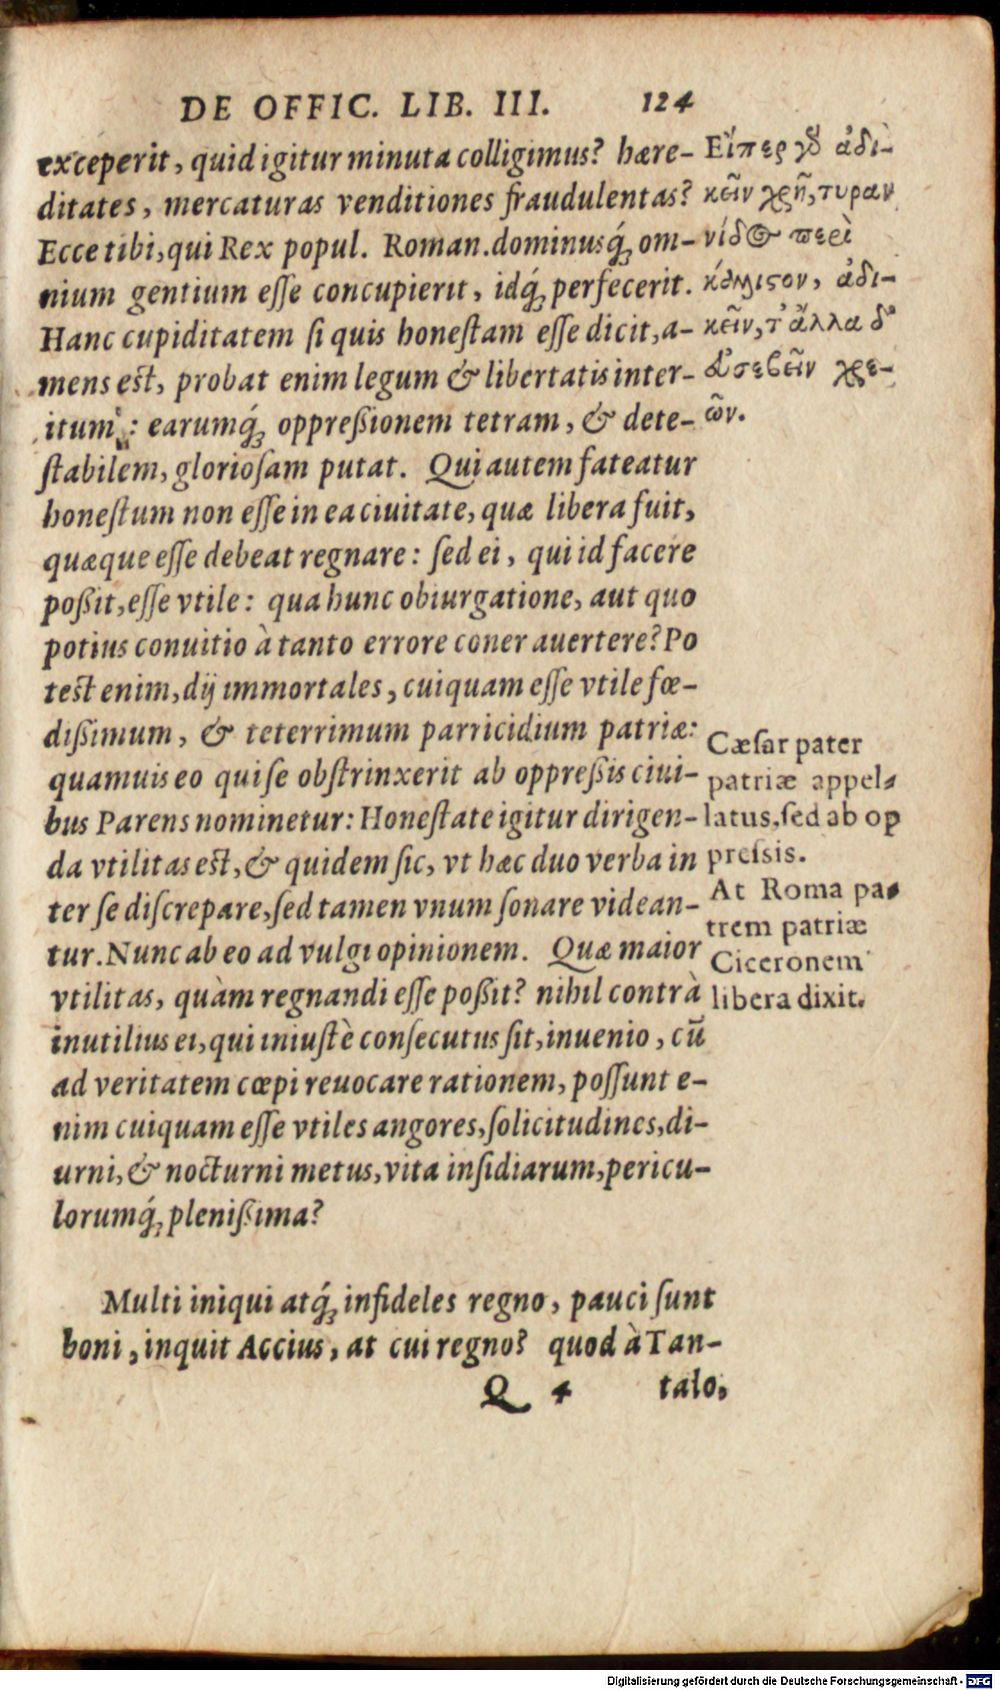 DE OFFIC. LIB. III. 124
exceperit, quid igitur minuta colligimus? hære-
ditates, mercaturas venditiones fraudulentas?
Ecce tibi, qui Rex popul. Roman. dominusq́; om-
nium gentium esse concupierit, idq́; perfecerit.
Hanc cupiditatem si quis honestam esse dicit, a-
mens est, probat enim legum & libertatis inter-
itum: earumq́; oppreßionem tetram, & dete-
stabilem, gloriosam putat. Qui autem fateatur
honestum non esse in ea ciuitate, quæ libera fuit,
quæque esse debeat regnare: sed ei, qui id facere
poßit, esse vtile: qua hunc obiurgatione, aut quo
potius conuitio à tanto errore coner auertere? Po
test enim, dij immortales, cuiquam esse vtile fœ-
dißimum, & teterrimum parricidium patriæ:
quamuis eo qui se obstrinxerit ab oppreßis ciui-
bus Parens nominetur: Honestate igitur dirigen-
da vtilitas est, & quidem sic, vt hæc duo verba in
ter se discrepare, sed tamen vnum sonare videan-
tur. Nunc ab eo ad vulgi opinionem. Quæ maior
vtilitas, quàm regnandi esse poßit? nihil contrà
inutilius ei, qui iniustè consecutus sit, inuenio, cū
ad veritatem cœpi reuocare rationem, possunt e-
nim cuiquam esse vtiles angores, solicitudines, di-
urni, & nocturni metus, vita insidiarum, pericu-
lorumq́; plenißima?
Multi iniqui atq́; infideles regno, pauci sunt
boni, inquit Accius, at cui regno? quod à Tan-
Q 4 talo,
Εἴπερ γδ ἀδι-
κεῖν χρῆ, τυραν
νίδος περὶ
κάλλιστον, ἀδι-
κεῖν, τ' ἄλλα δ'
εὐσεβεῖν χρε-
ῶν.
Cæsar pater
patriæ appel-
latus, sed ab op
pressis.
At Roma pa-
trem patriæ
Ciceronem
libera dixit.
Digitalisierung gefördert durch die Deutsche Forschungsgemeinschaft - DFG